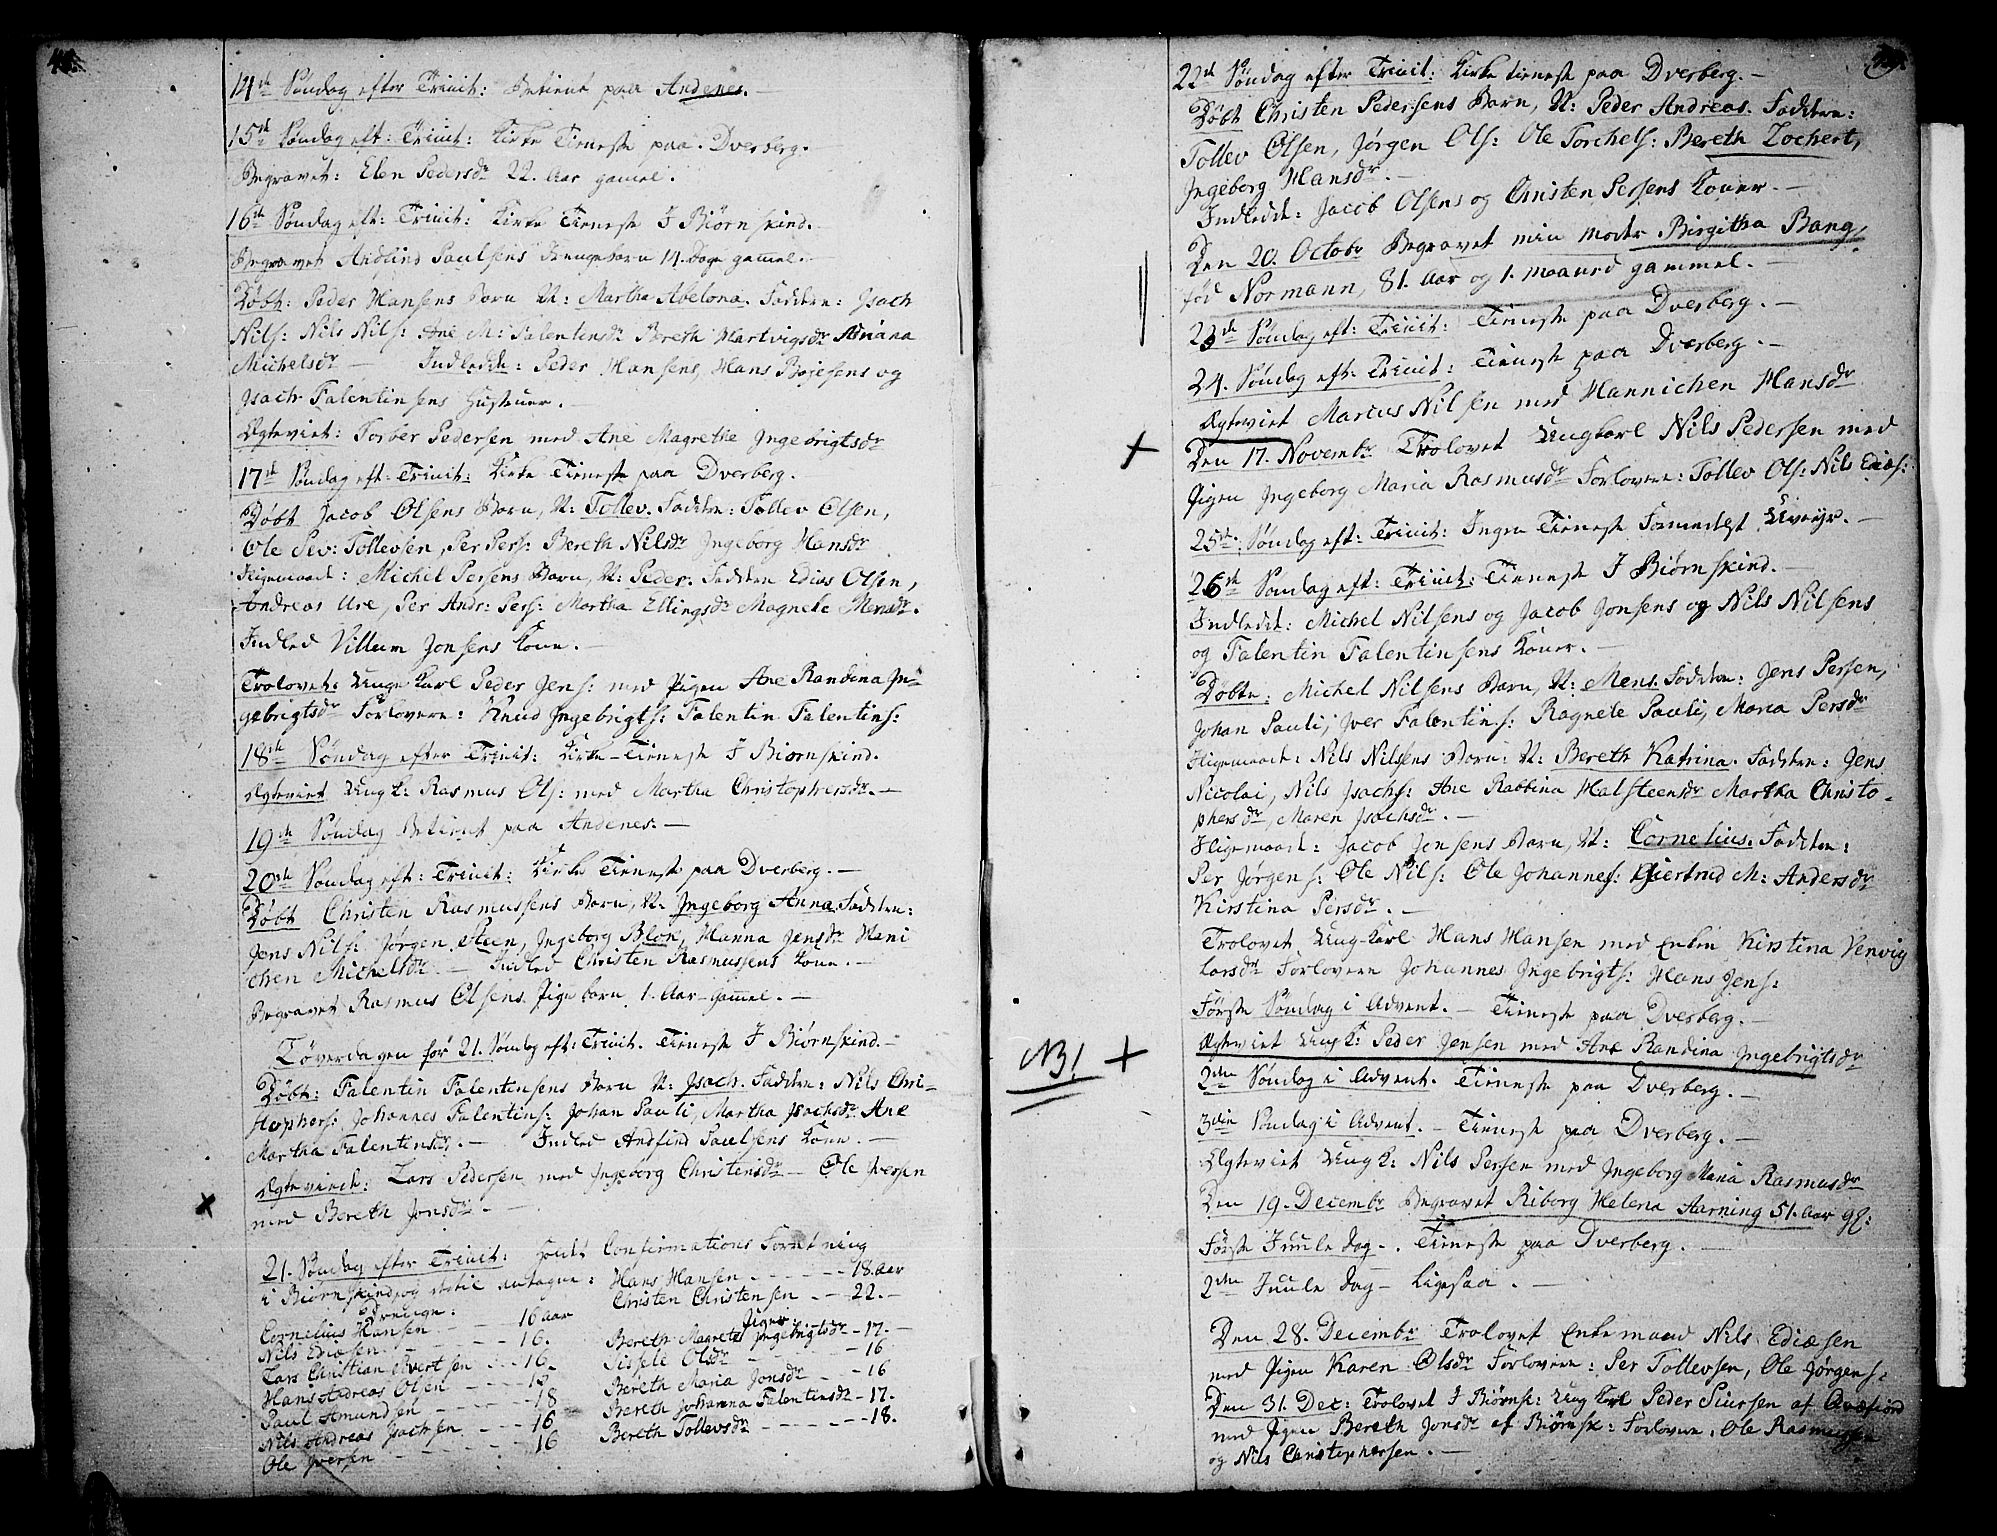 14de Søndag efter Trinit: Betient paa Andenes.
15de Søndag eft: Trinit: Kirke Tieneste paa Dverberg.
Begravet: Elen Pedersdr 22. Aar gamel.
16de Søndag eft: Trinit: Kirke Tieneste I Biørnskind.
Begravet Andfind Paulsens Drengebarn 14. Dage gamel.
Døbt: Peder Hansens Barn N: Martha Abelona. Faddere: Isach
Nils: Nils Nils: Ane M: Falentinsdr Bereth Hartvigsdr Adriana
Michelsdr — Indledde: Peder Hansens, Hans Bojesens og
Isach Falentinsens Hustruer.
Egteviet: Torber Pedersen med Ane Magrethe Ingebrigtsdr
17de Søndag eft: Trinit: Kirke Tieneste paa Dverberg.
Døbt Jacob Olsens Barn, N: Tollev. Faddere: Tollev Olsen,
Ole Sev: Tollevsen, Per Pers: Bereth Nilsdr Ingeborg Hansdr
Iligemaade: Michel Persens Barn, N: Peder. Faddere Edias Olsen,
Andreas Ure, Per Andr: Pers: Martha Ellingsdr Magnele Mensdr.
Indled Villum Jonsens Kone.
Trolovet: Unge Karl Peder Jens: med Pigen Ane Randina In-
gebrigtsdr Forlovere: Knud Ingebrigts: Falentin Falentins:
18de Søndag efter Trinit: Kirke-Tieneste I Biørnskind.
Egteviet Ung K: Rasmus Ols: med Martha Christophersdr. —
19de Søndag Betient paa Andenes. —
20de Søndag eft: Trinit: Kirke Tieneste paa Dverberg. —
Døbt Christen Rasmussens Barn, N: Ingeborg Anna. Faddere:
Jens Nils: Jørgen Steen, Ingeborg Blok, Hanna Jensdr Hani
chen Michelsdr. — Indled Christen Rasmussens Kone. —
Begravet Rasmus Olsens Pigebarn 1. Aar Gammel. —
Løverdagen før 21. Søndag eft: Trinit. Tieneste I Biørnskind. —
Døbt: Falentin Falentinsens Barn N: Isach. Faddere: Nils Chri-
stophers: Johannes Falentins: Johan Pauli, Martha Isachsdr Ane
Martha Falentinsdr. — Indled Andfind Paulsens Kone. —
Egteviede: Lars Pedersen med Ingeborg Christensdr — Ole Iversen
med Bereth Jonsdr. —
21. Søndag efter Trinit: holdt Confirmations Forretning
i Biørnskind, og dertil antagne: Hans Hansen — 18. Aar
Drenge: Christen Christensen — 22. —
Cornelius Hansen — 16 aar
Piger
Nils Ediæsen — 16. Bereth Magrete Ingebrigtsdr — 17. —
Lars Christian Evertsen — 16. Sissele Olsdr — 16
Hans Andreas Olsen — Bereth Maria Jonsdr — 16
Paul Amundsen — 18 Bereth Johanna Falentinsdr — 17.
Nils Andreas Isachsen — 16 Bereth Tollevsdr — 18.
Ole Iversen — 16
22de Søndag efter Trinit: Kirke tieneste paa Dverberg. —
Døbt Christen Pedersens Barn, N: Peder Andreas. Faddere:
Tollev Olsen, Jørgen Ols: Ole Torchels: Bereth Zochert,
Ingeborg Hansdr. —
Indledde: Jacob Olsens og Christen Persens Koner. —
Den 20. Octobr Begravet min Moder Birgitha Bang,
fød Normann, 81. Aar og 1. Maaned gammel. —
23de Søndag eft: Trinit: Tieneste paa Dverberg. —
24. Søndag eft: Trinit: Tieneste paa Dverberg. —
Egteviet Marcus Nilsen med Hannichen Hansdr
Den 17. Novembr Trolovet Ungkarl Nils Pedersen med
Pigen Ingeborg Maria Rasmusdr Forlovere: Tollev Ols: Nils Ediæs:
25de Søndag eft: Trinit: Ingen Tieneste formedelst Uveyr. —
26de Søndag eft: Trinit: Tieneste I Biørnskind. —
Indledde: Michel Nilsens og Jacob Jonsens og Nils Nilsens
og Falentin Falentinsens Koner. —
Døbte: Michel Nilsens Barn, N: Mens. Faddere: Jens Persen,
Johan Pauli, Iver Falentins: Ragnele Pauli, Maria Persdr
Iligemaade: Nils Nilsens Barn: N: Bereth Katrina. Faddere: Jens
Nicolai, Nils Isachs: Ane Rabbina Halsteensdr Martha Christo-
phersdr, Maren Isachsdr. —
Iligemaade: Jacob Jensens Barn, N: Cornelius. Faddere:
Per Jørgens: Ole Nils: Ole Johannes: Giertrud M: Andersdr
Kirstina Persdr. —
Trolovet Ung-Karl Hans Hansen med Enken Kirstina Venvig
Larsdr Forlovere Johannes Ingebrigts: Hans Jens:
Første Søndag i Advent. — Tieneste paa Dverberg. —
NB! Egteviet Ung K: Peder Jensen med Ane Randina Ingebrigtsdr
2den Søndag i Advent. Tieneste paa Dverberg. —
3die Søndag i Advent. — Tieneste paa Dverberg. —
Egteviet Ung K: Nils Persen med Ingeborg Maria Rasmusdr
Den 19. Decembr Begravet Riborg Helena Aarning 51. Aar gl:
Første Juule Dag —. Tieneste paa Dverberg. —
2den Juule Dag — Ligesaa. —
Den 28. Decembr Trolovet Enkemand Nils Ediæsen
med Pigen Karen Olsdr Forlovere: Per Tollevsen, Ole Jørgens:
Den 31. Dec: Trolovet I Biørnsk: Ung Karl Peder Siursen af Qvæfiord
med Pigen Bereth Jonsdr af Biørnsk: Forlovere: Ole Rasmussen
og Nils Christophersen. —